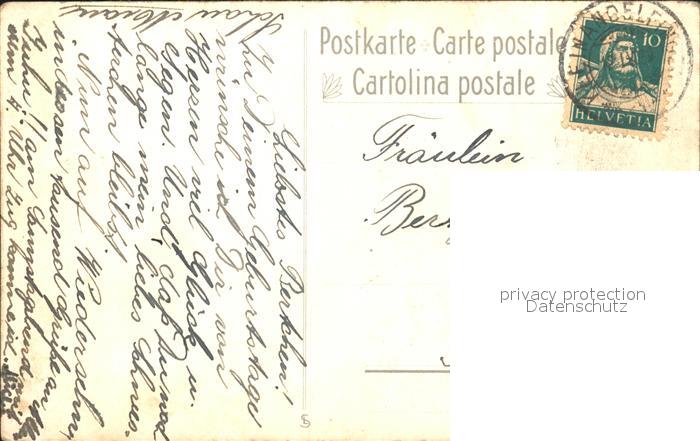 Postkarte Carte postale
Cartolina postale
10
HELVETIA
Fräulein
privacy protection
Datenschutz
Liebstes Bertheli!
Zu Deinem Geburtstage
wünsche ich Dir von
Herzen viel Glück u.
Segen. Und daß Du noch
lange mein liebes Schwes-
terchen bleibst.
Nun auf Wiedersehn
indessen tausend Grüße an
am Samstagabend
dem 4. Uhr Zug